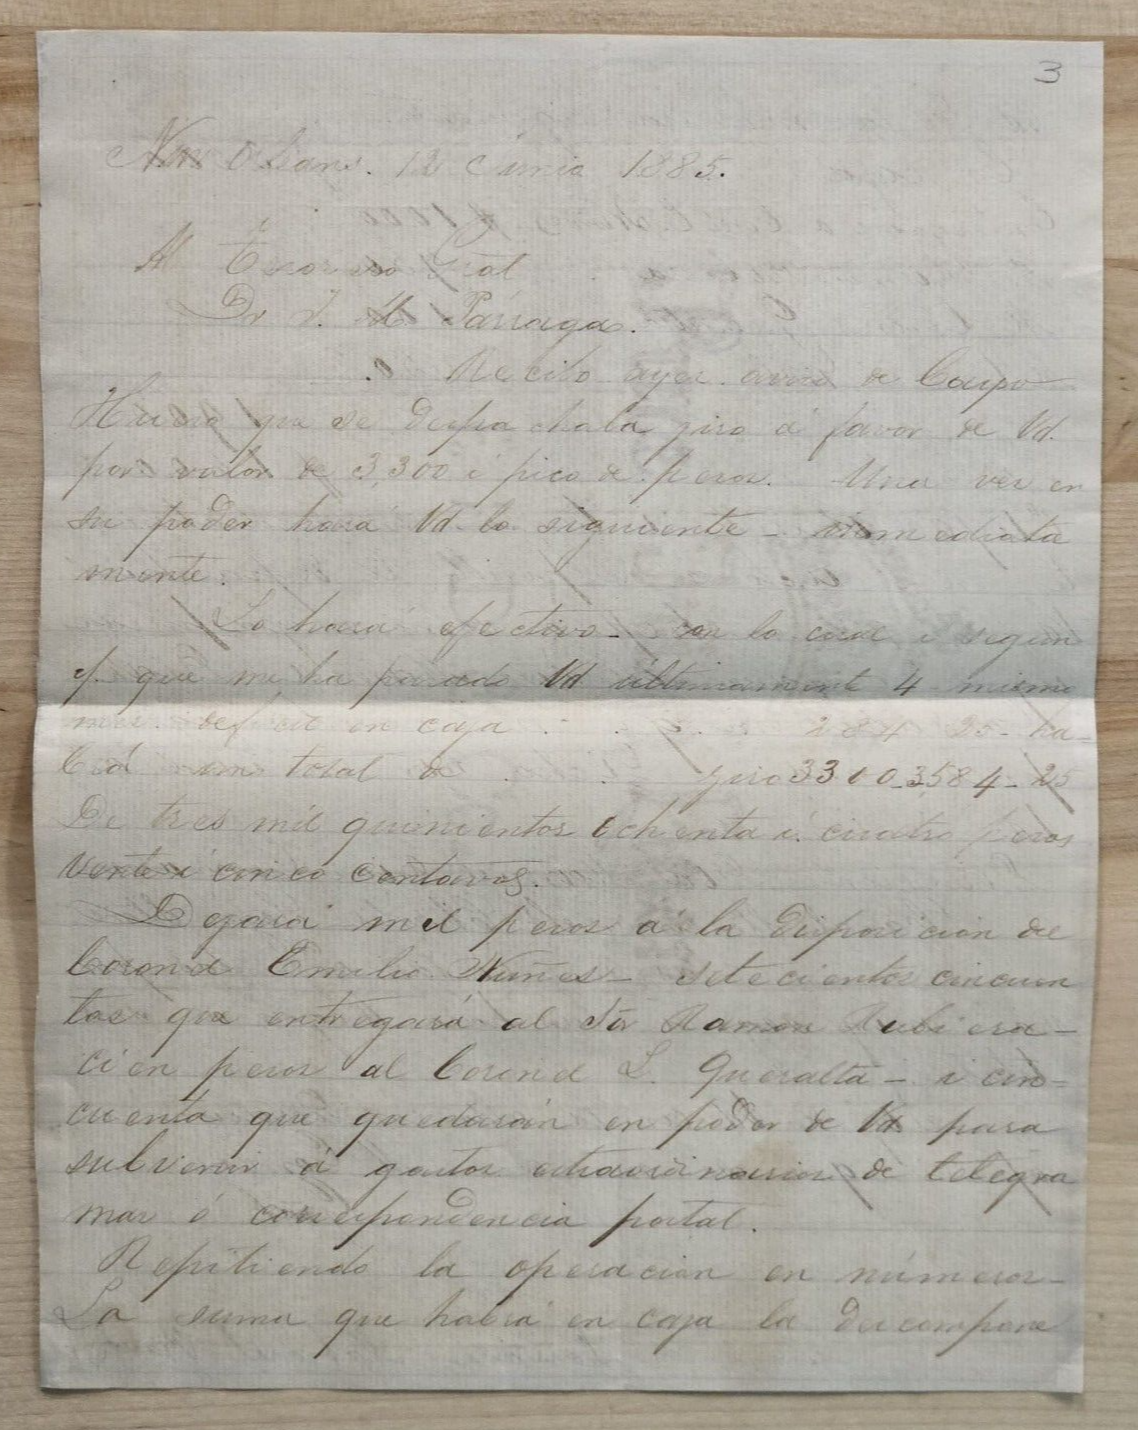 3
New Orleans. 12 Junio 1885.
Al Tesorero Gral
Dr J. M. Párraga.
Recibo ayer aviso de Cayo
Hueso que se despachaba giro á favor de Vd.
por valor de 3,300 i pico de pesos. Una vez en
su poder hará Vd. lo siguiente - inmediata
mente.
Lo hará efectivo - con lo cual i segun
que me ha pasado Vd ultimamente 4 mismo
mes. deficit en caja . . . 284 25 - ha-
brá un total de . . giro 3300 - 3584 - 25
De tres mil quinientos ochenta i cuatro pesos
veinte i cinco centavos.
Dejará mil pesos a la disposicion del
Coronel Emilio Nuñes - setecientos cincuen
tas que entregará al Sór Ramon Rubiera -
cien pesos al Coronel L. Queralta - i cin=
cuenta que quedarán en poder de Vd. para
subvenir á gastos extraordinarios de telegra
mas ó correspondencia postal.
Repitiendo la operacion en números -
La suma que habrá en caja la descompone